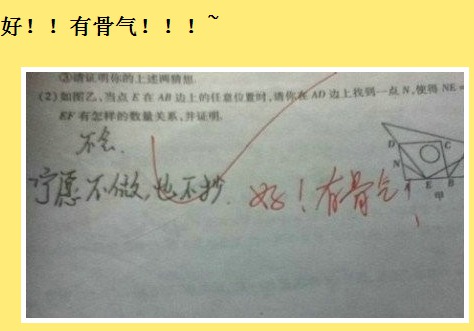 好！！有骨气！！！~
③请证明你的上述两猜想.
(2)如图乙,当点E在AB边上的任意位置时,请你在AD边上找到一点N,使得NE=
EF有怎样的数量关系,并证明.
不会.
宁愿不做,也不抄. 好！有骨气！
D C
N
A E B
甲